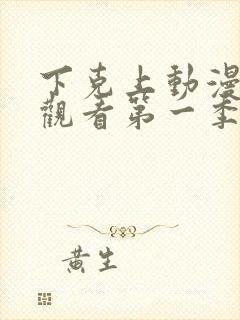 下克上動漫
觀看第一季
黃生